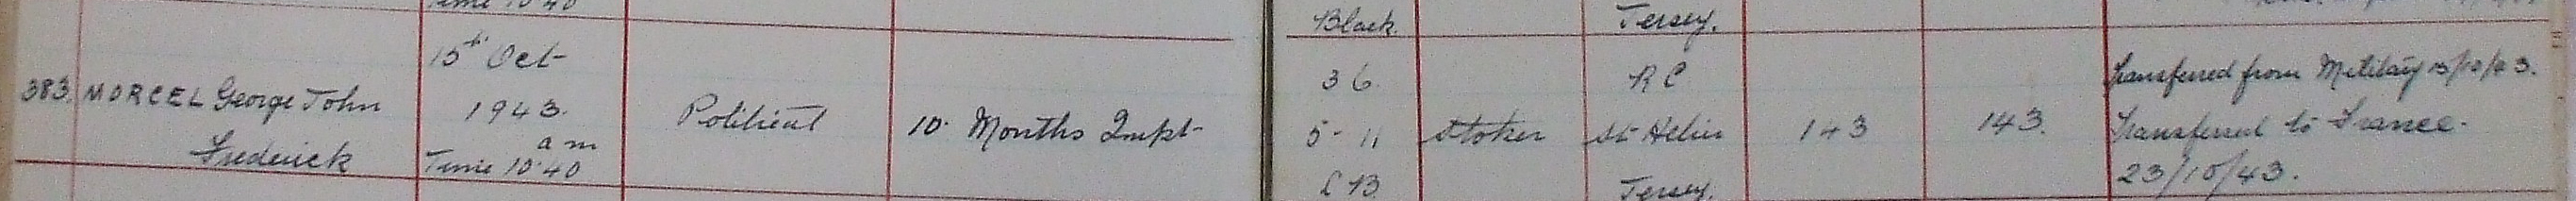 Time 10.40
Black.
Jersey.
383. MORCEL George John
Frederick
15th Oct
1943.
a m
Time 10.40
Political
10. Months Impt.
36.
5 - 11
L B.
Stoker
R C
St Helier
Jersey.
143
143.
Transferred from Military 15/10/43.
Transferred to France.
23/10/43.